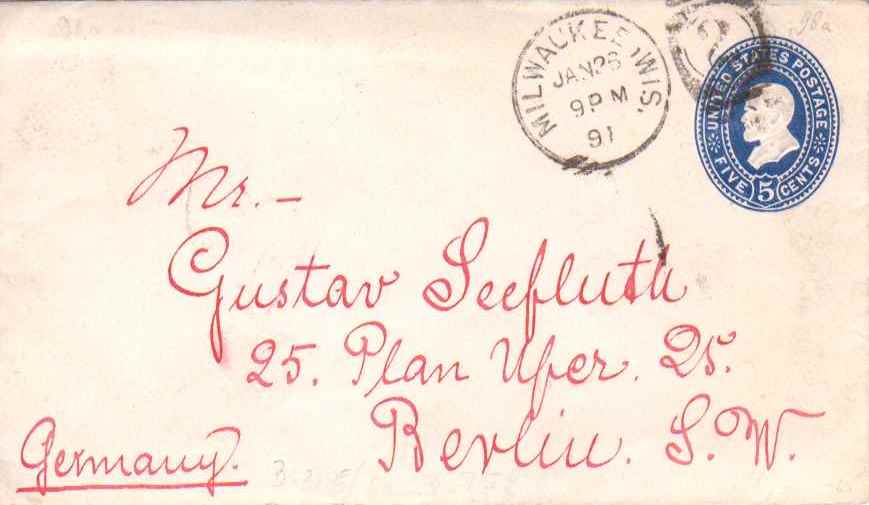 MILWAUKEE, WIS.
JAN 28
9 PM
91
2
UNITED STATES POSTAGE
FIVE 5 CENTS
98a
Mr. –
Gustav Seefluth
25. Plan Ufer. 25.
Berlin. S. W.
Germany.